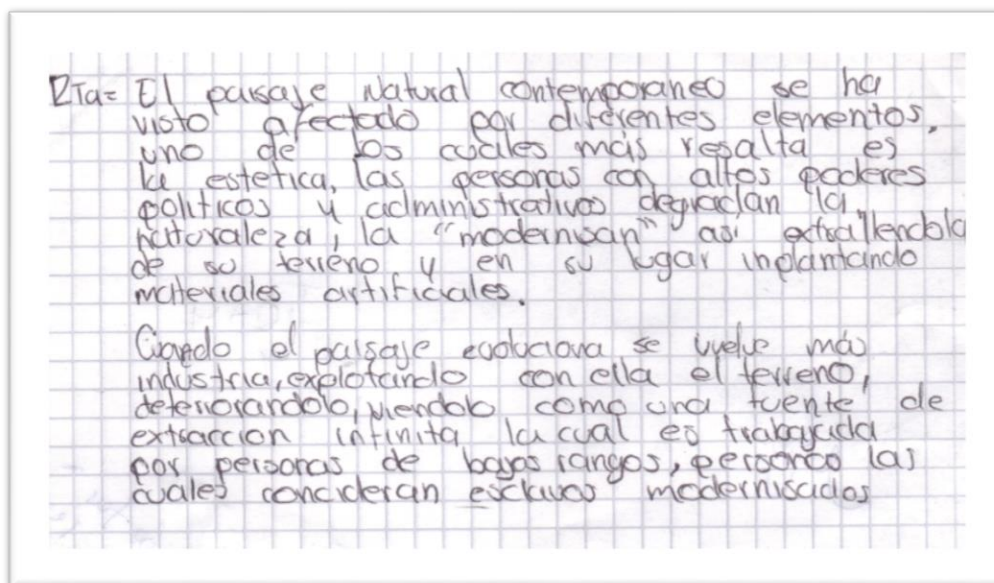 RTa= El paisaje Natural contemporaneo se ha
visto afectado por diferentes elementos,
uno de los cuales más resalta es
la estetica, las personas con altos poderes
politicos y administrativos degradan la
naturaleza, la "modernisan" asi extrallendola
de su terreno y en su lugar inplantando
materiales artificiales.
Cuando el paisaje evoluciona se vuelve más
industria, explotando con ella el terreno,
deteriorandolo, viendolo como una fuente de
extraccion infinita la cual es trabajada
por personas de bajos rangos, personas las
cuales concideran esclavos modernisados